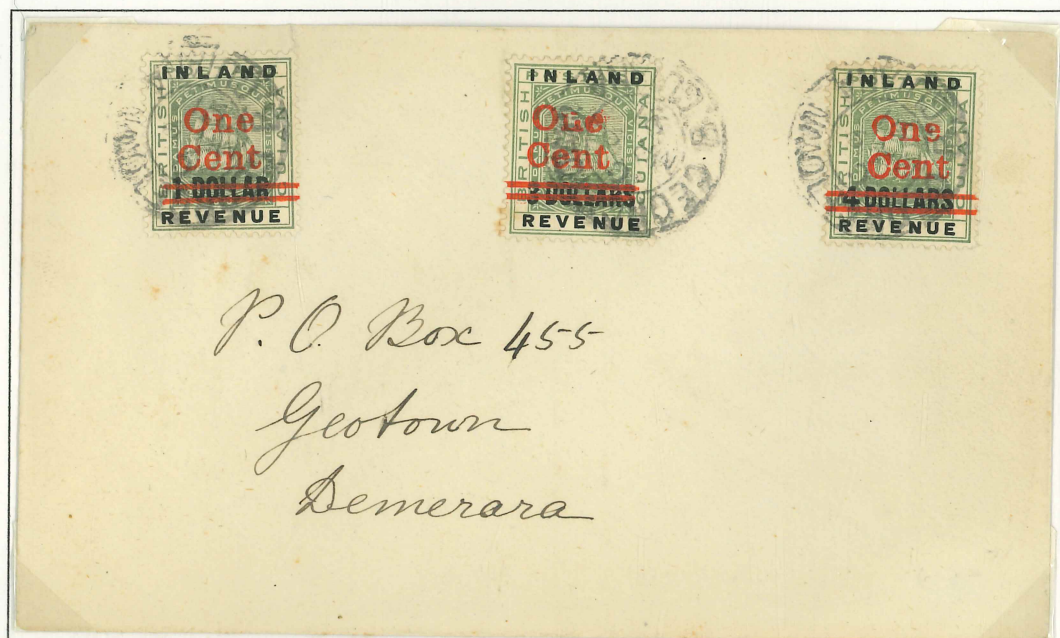 INLAND
BRITISH
GUIANA
One
Cent
1 DOLLAR
REVENUE
INLAND
BRITISH
GUIANA
One
Cent
3 DOLLARS
REVENUE
INLAND
BRITISH
GUIANA
One
Cent
4 DOLLARS
REVENUE
P. O. Box 455
Geotown
Demerara